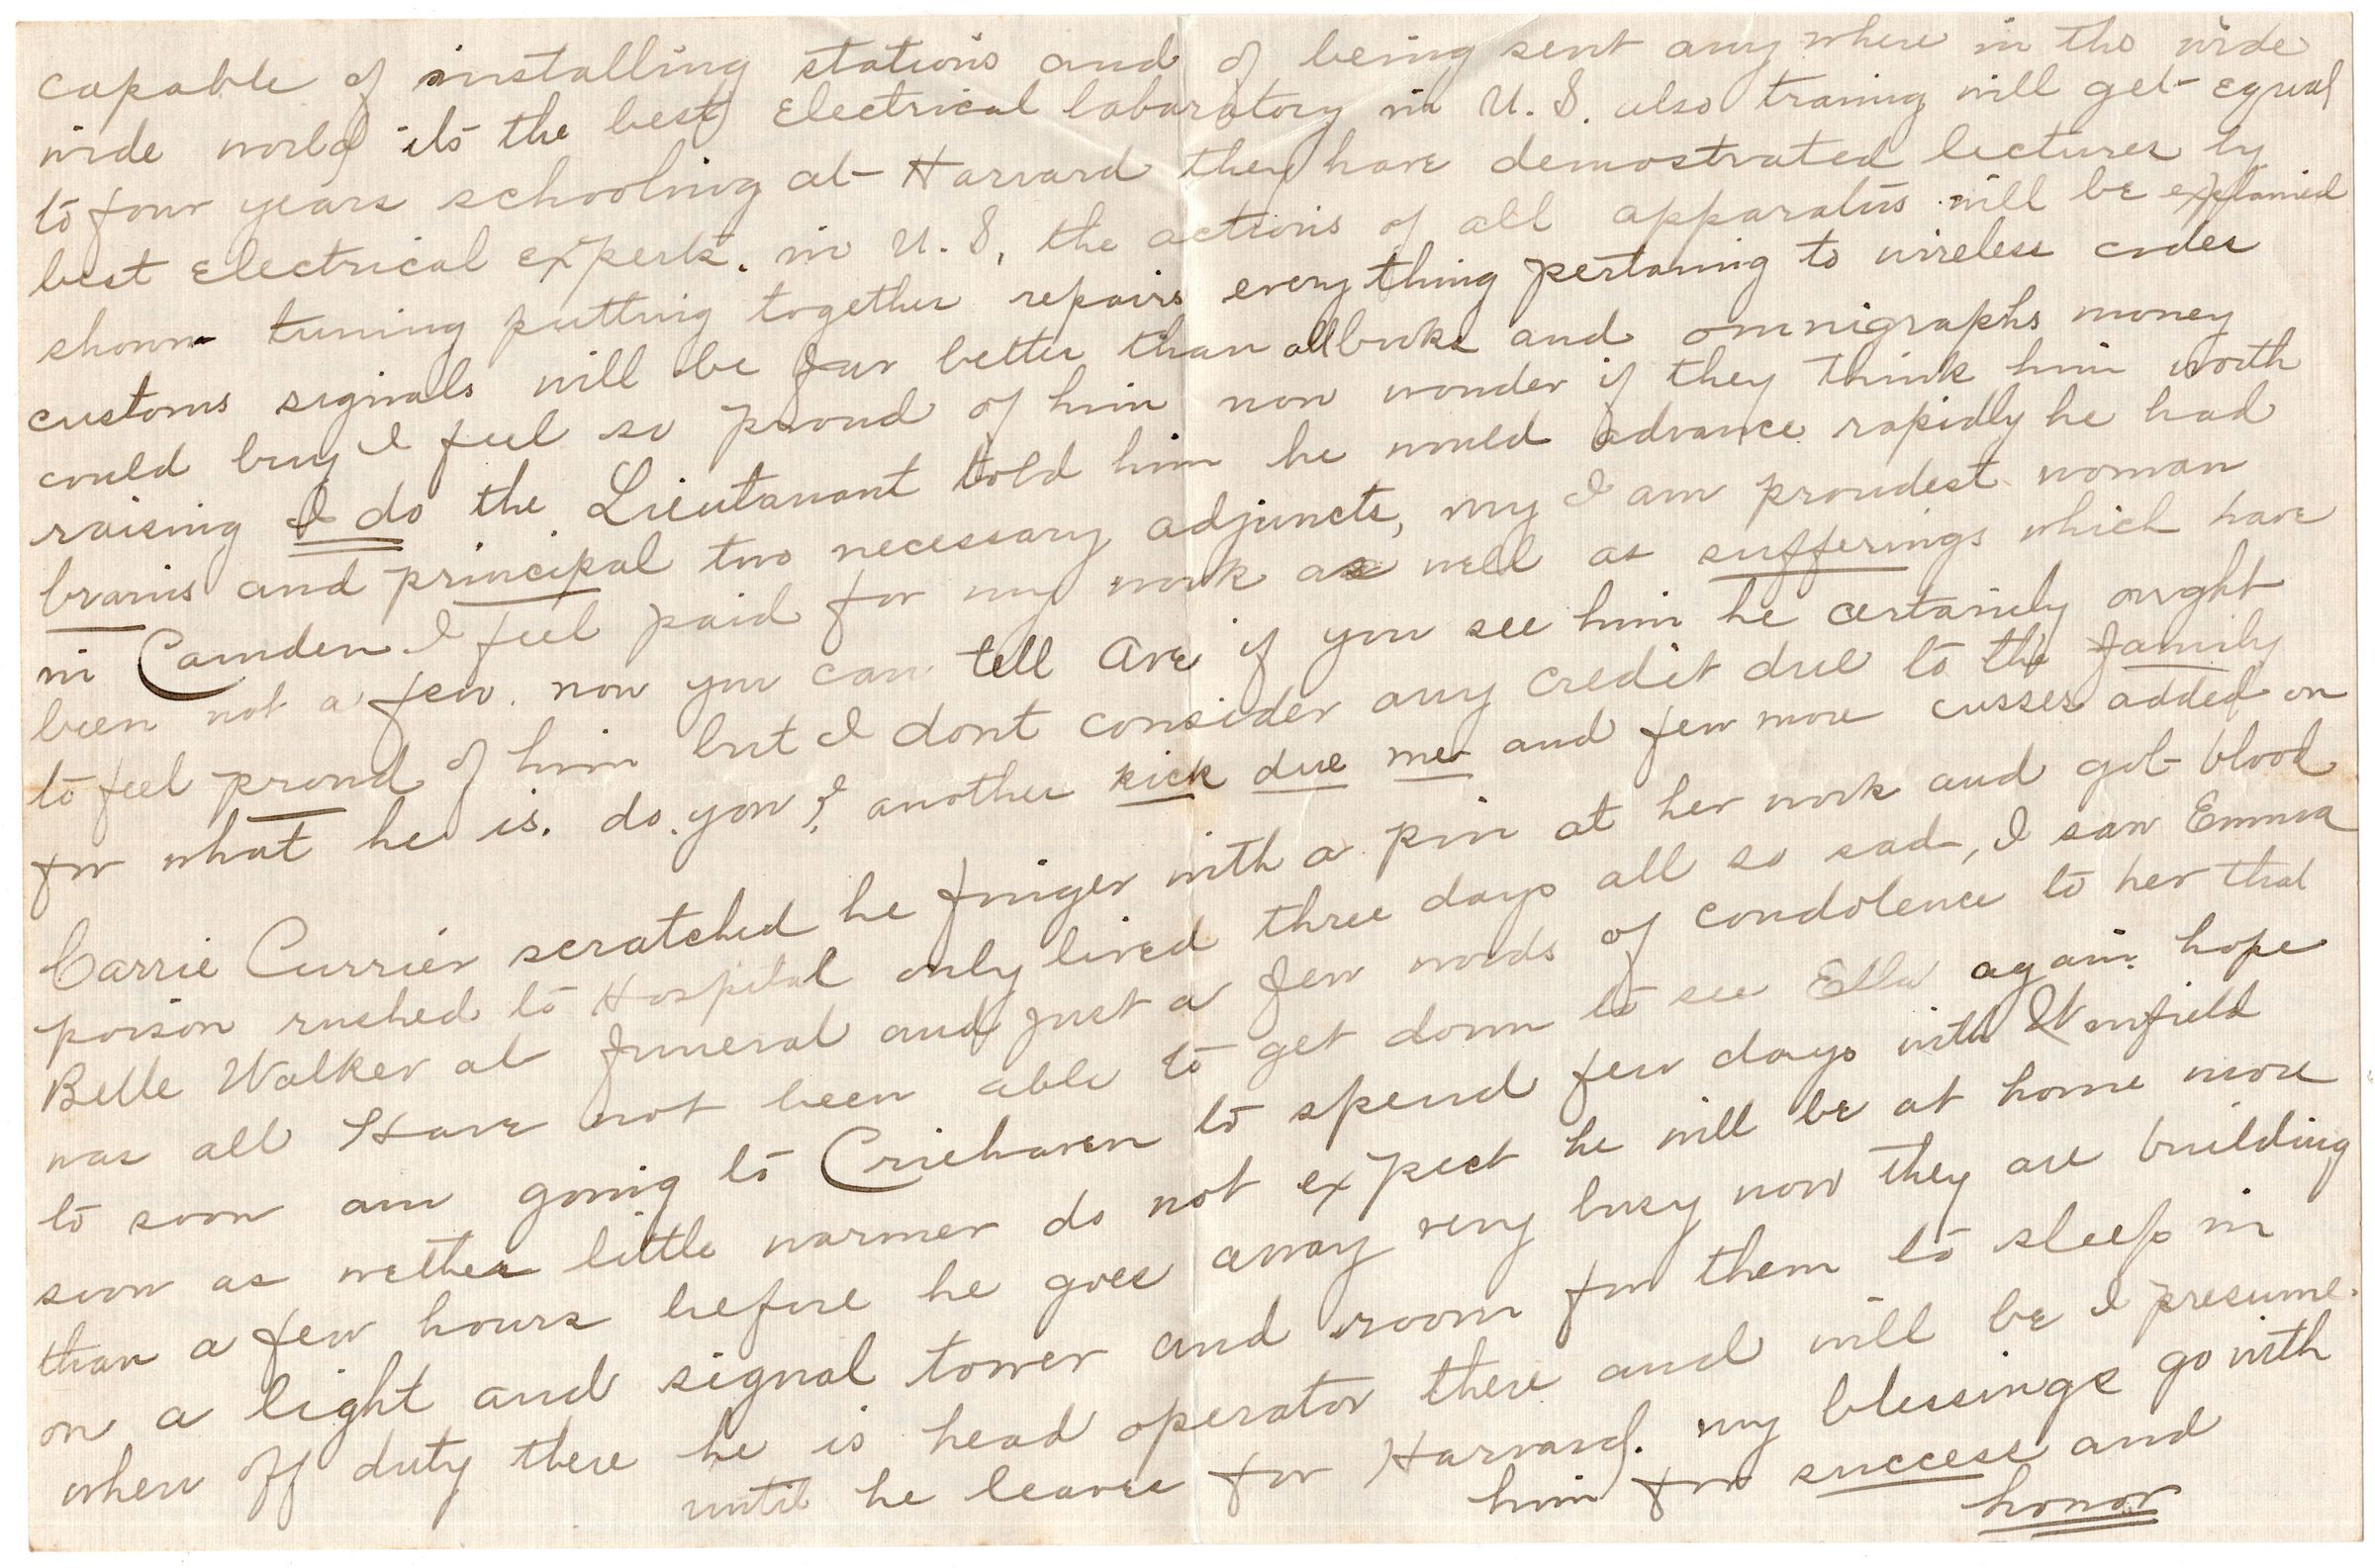 capable of installing stations and of being sent any where in the wide
wide world its the best Electrical labaratory in U.S. also traning will get equal
to four years schooling at Harvard they have demostrated lectures by
best Electrical experts. in U.S. the actions of all apparatus will be explained
shown tuning putting together repairs everything pertaning to wireless codes
customs signals will be far better than all books and omnigraphs money
could buy I feel so proud of him now wonder if they think him worth
raising I do the Lieutanant told him he would advance rapidly he had
brains and principal two necessary adjuncts, my I am proudest woman
in Camden I feel paid for my work as well as sufferings which have
been not a few. now you can tell Ava if you see him he certainly ought
to feel proud of him but I dont consider any credit due to the family
for what he is. do you? another kick due me and few more cusses added on
Carrie Currier scratched he finger with a pin at her work and got blood
poison rushed to Hospital only lived three days all so sad, I saw Emma
Belle Walker at funeral and just a few words of condolence to her that
was all Have not been able to get down to see Ella again. hope
to soon am going to Criehaven to spend few days with Winfield
soon as wether little warmer do not expect he will be at home more
than a few hours before he goes away very busy now they are building
on a light and signal tower and room for them to sleep in
when off duty there he is head operator there and will be I presume.
until he leaves for Harvard. my blessings go with
him for success and
honor